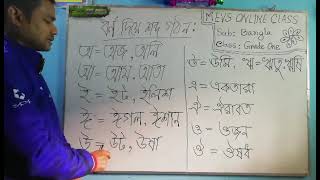 বর্ণ দিয়ে শব্দ গঠন:
অ = অজ, অলি
আ = আম, আতা
ই = ইট, ইলিশ
ঈ = ঈগল, ঈশান
উ = উট, ঊষা
MEVS ONLINE CLASS
Sub: Bangla
Class: Grade One
ঊ = ঊর্মি, ঋ = ঋতু, ঋষি
এ = একতারা
ঐ = ঐরাবত
ও = ওজন
ঔ = ঔষধ